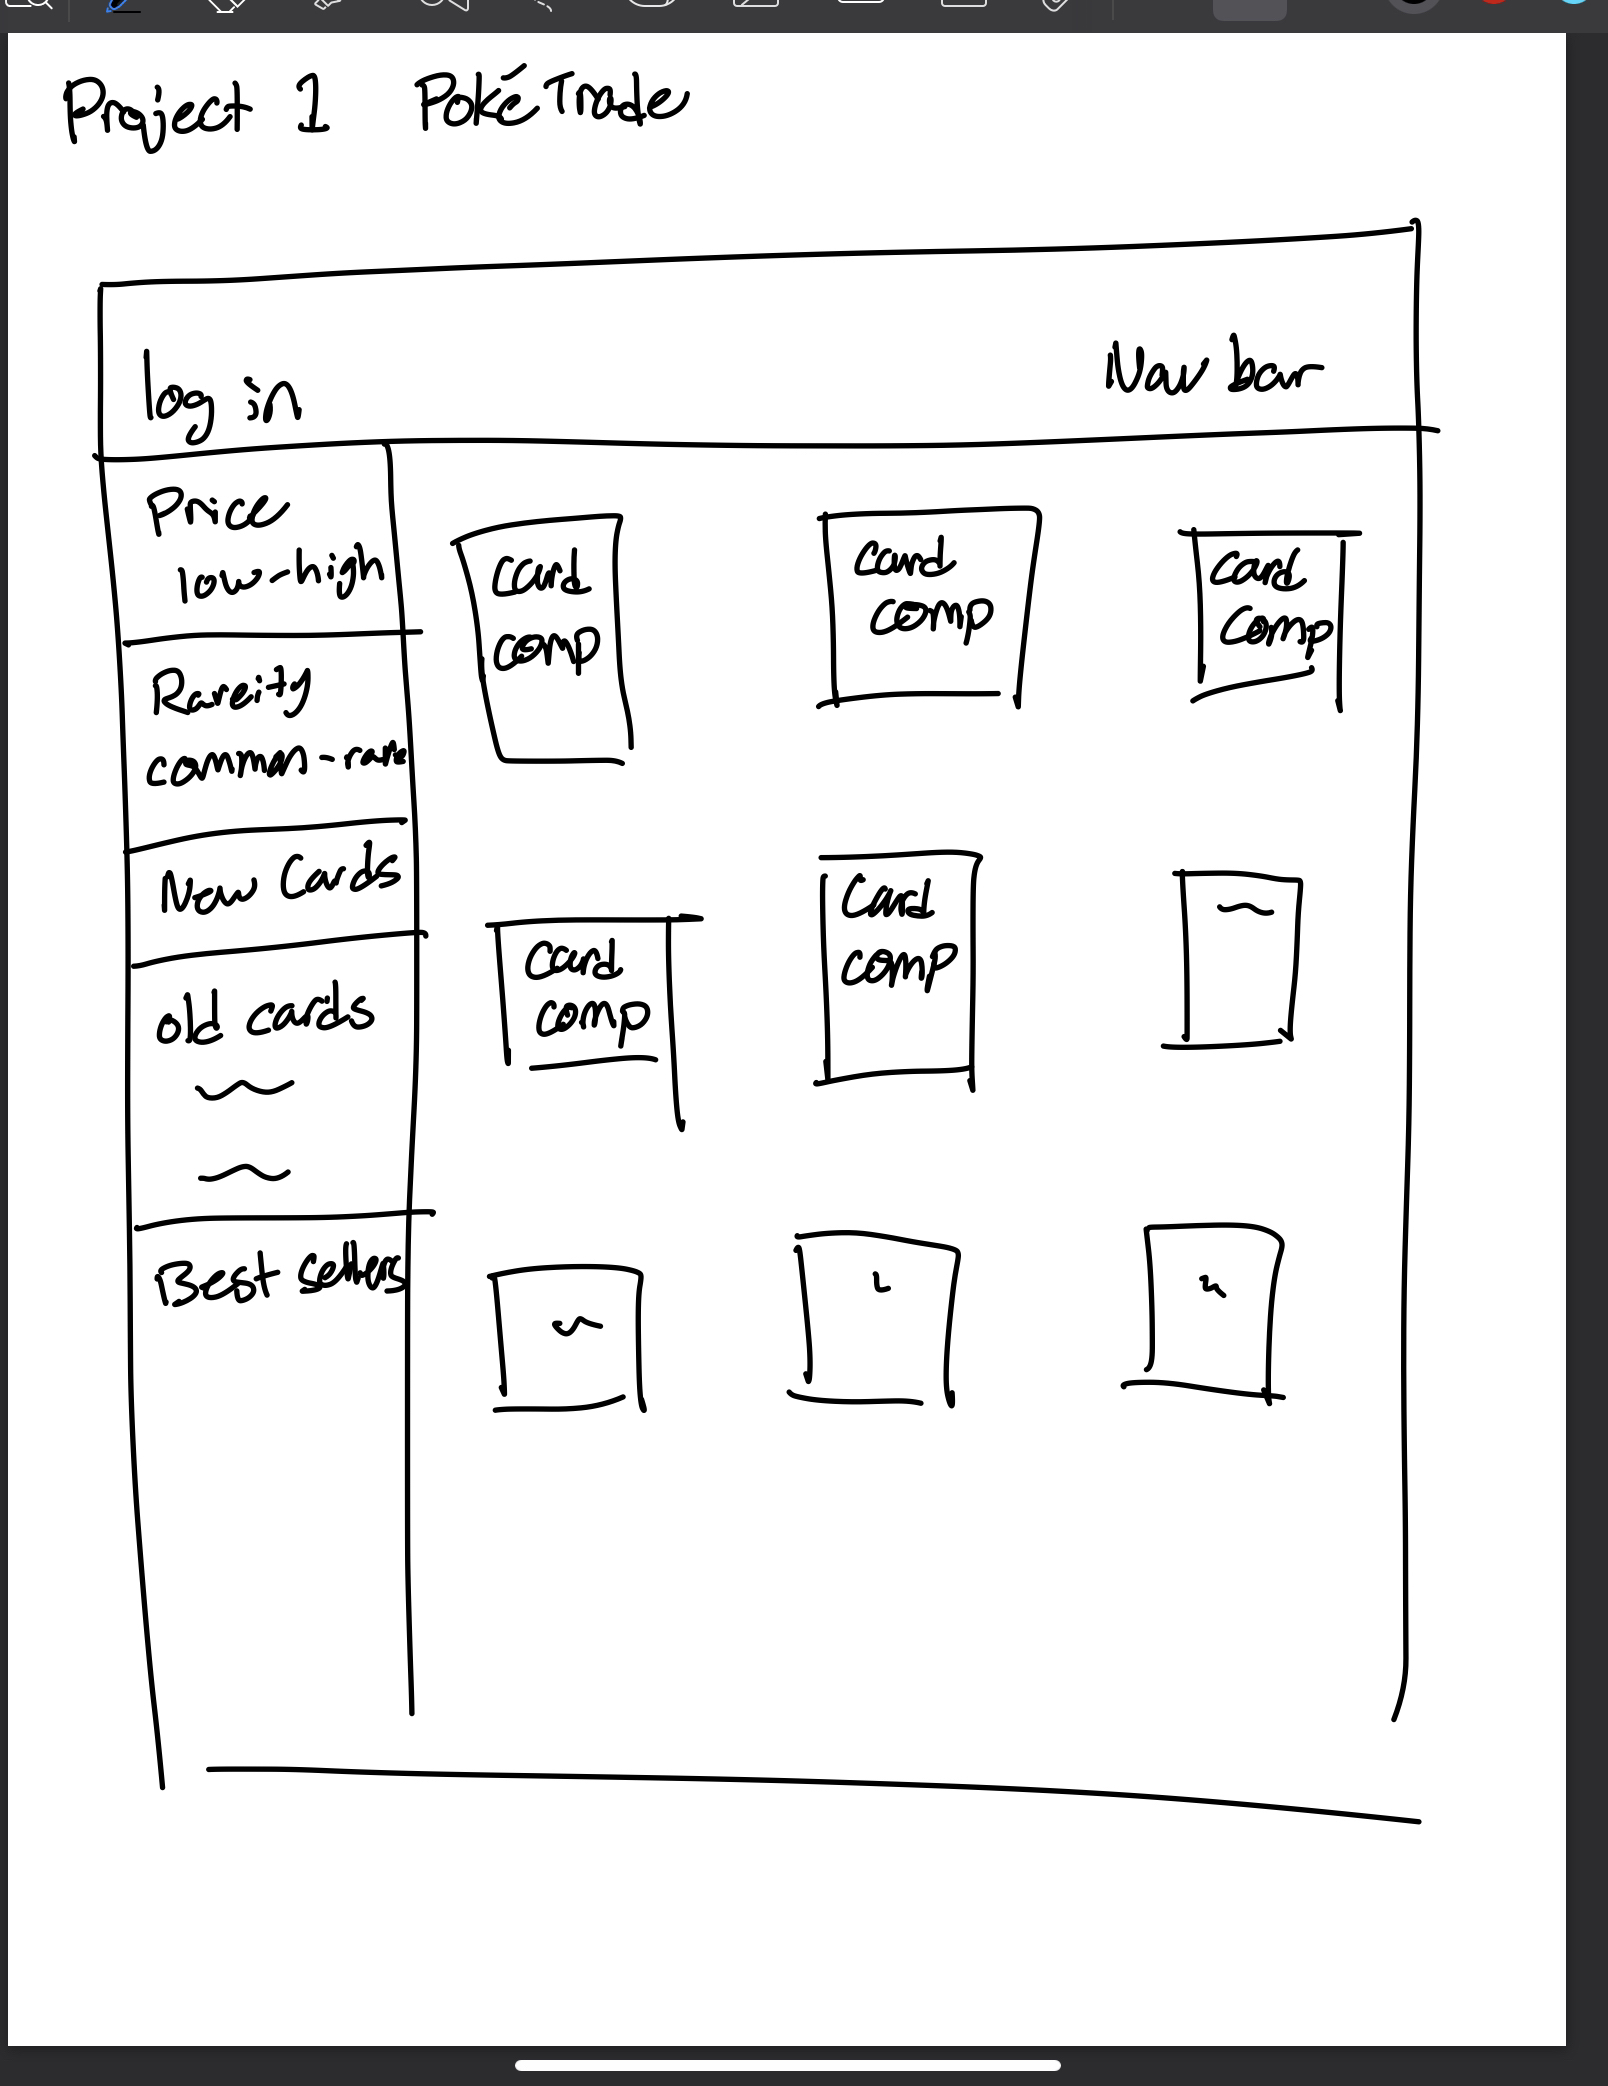 Project 1 PokéTrade
log in Nav bar
Price
low-high
Rareity
common-rare
New Cards
old cards
Best sellers
card
comp
card
comp
card
comp
card
comp
Card
comp